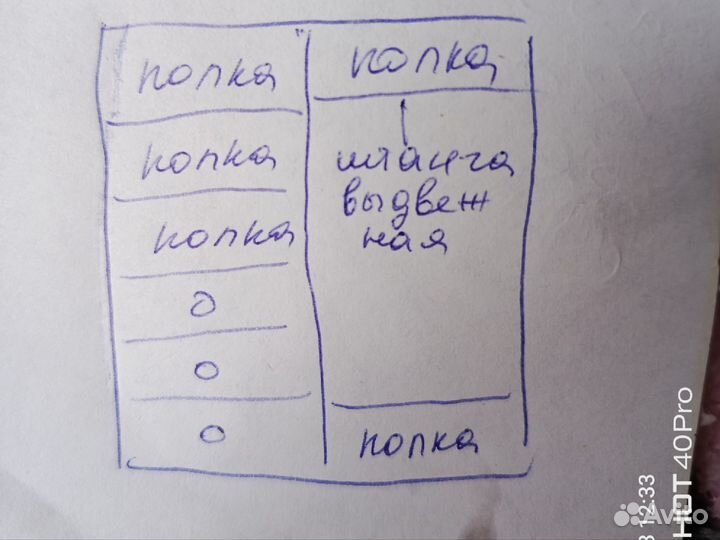 полка
полка
полка
о
о
о
полка
штанга
выдвеж
ная
полка
3 12:33
HOT 40Pro
Avito